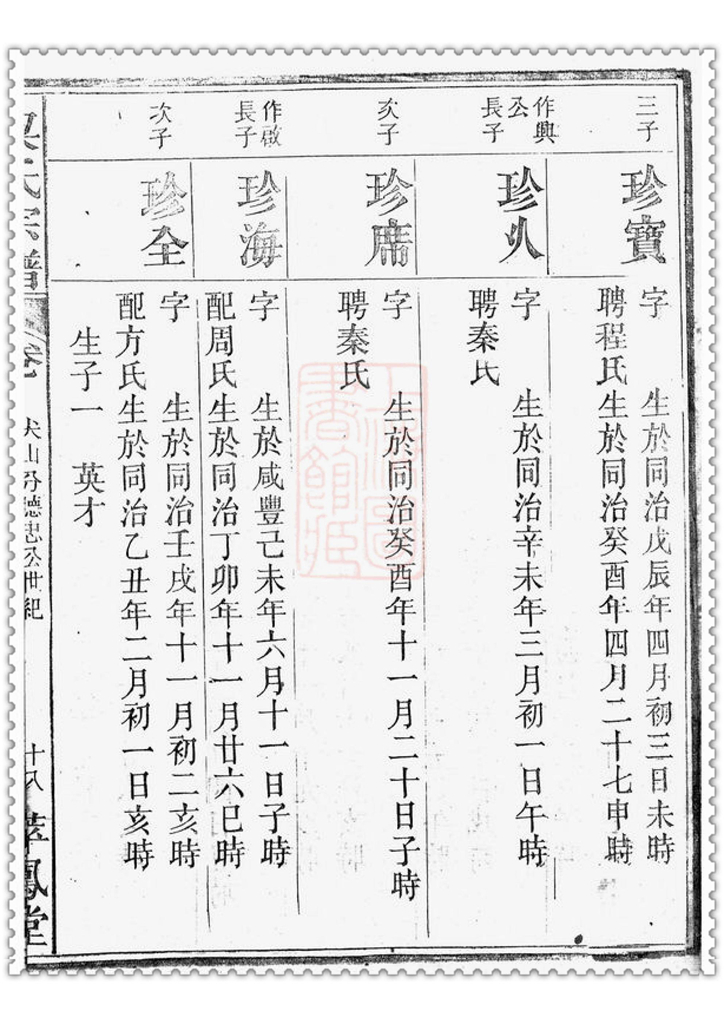 三子
珍寶
字　　生於同治戊辰年四月初三日未時
聘程氏生於同治癸酉年四月二十七申時
作興
公
長子
珍火
字　　生於同治辛未年三月初一日午時
聘秦氏
次子
珍席
字　　生於同治癸酉年十一月二十日子時
聘秦氏
作啟
長子
珍海
字　　生於咸豐己未年六月十一日子時
配周氏生於同治丁卯年十一月廿六巳時
次子
珍全
字　　生於同治壬戌年十一月初二亥時
配方氏生於同治乙丑年二月初一日亥時
生子一　英才
氏宗譜
卷
山分德忠公世紀
十八
萃鳳堂